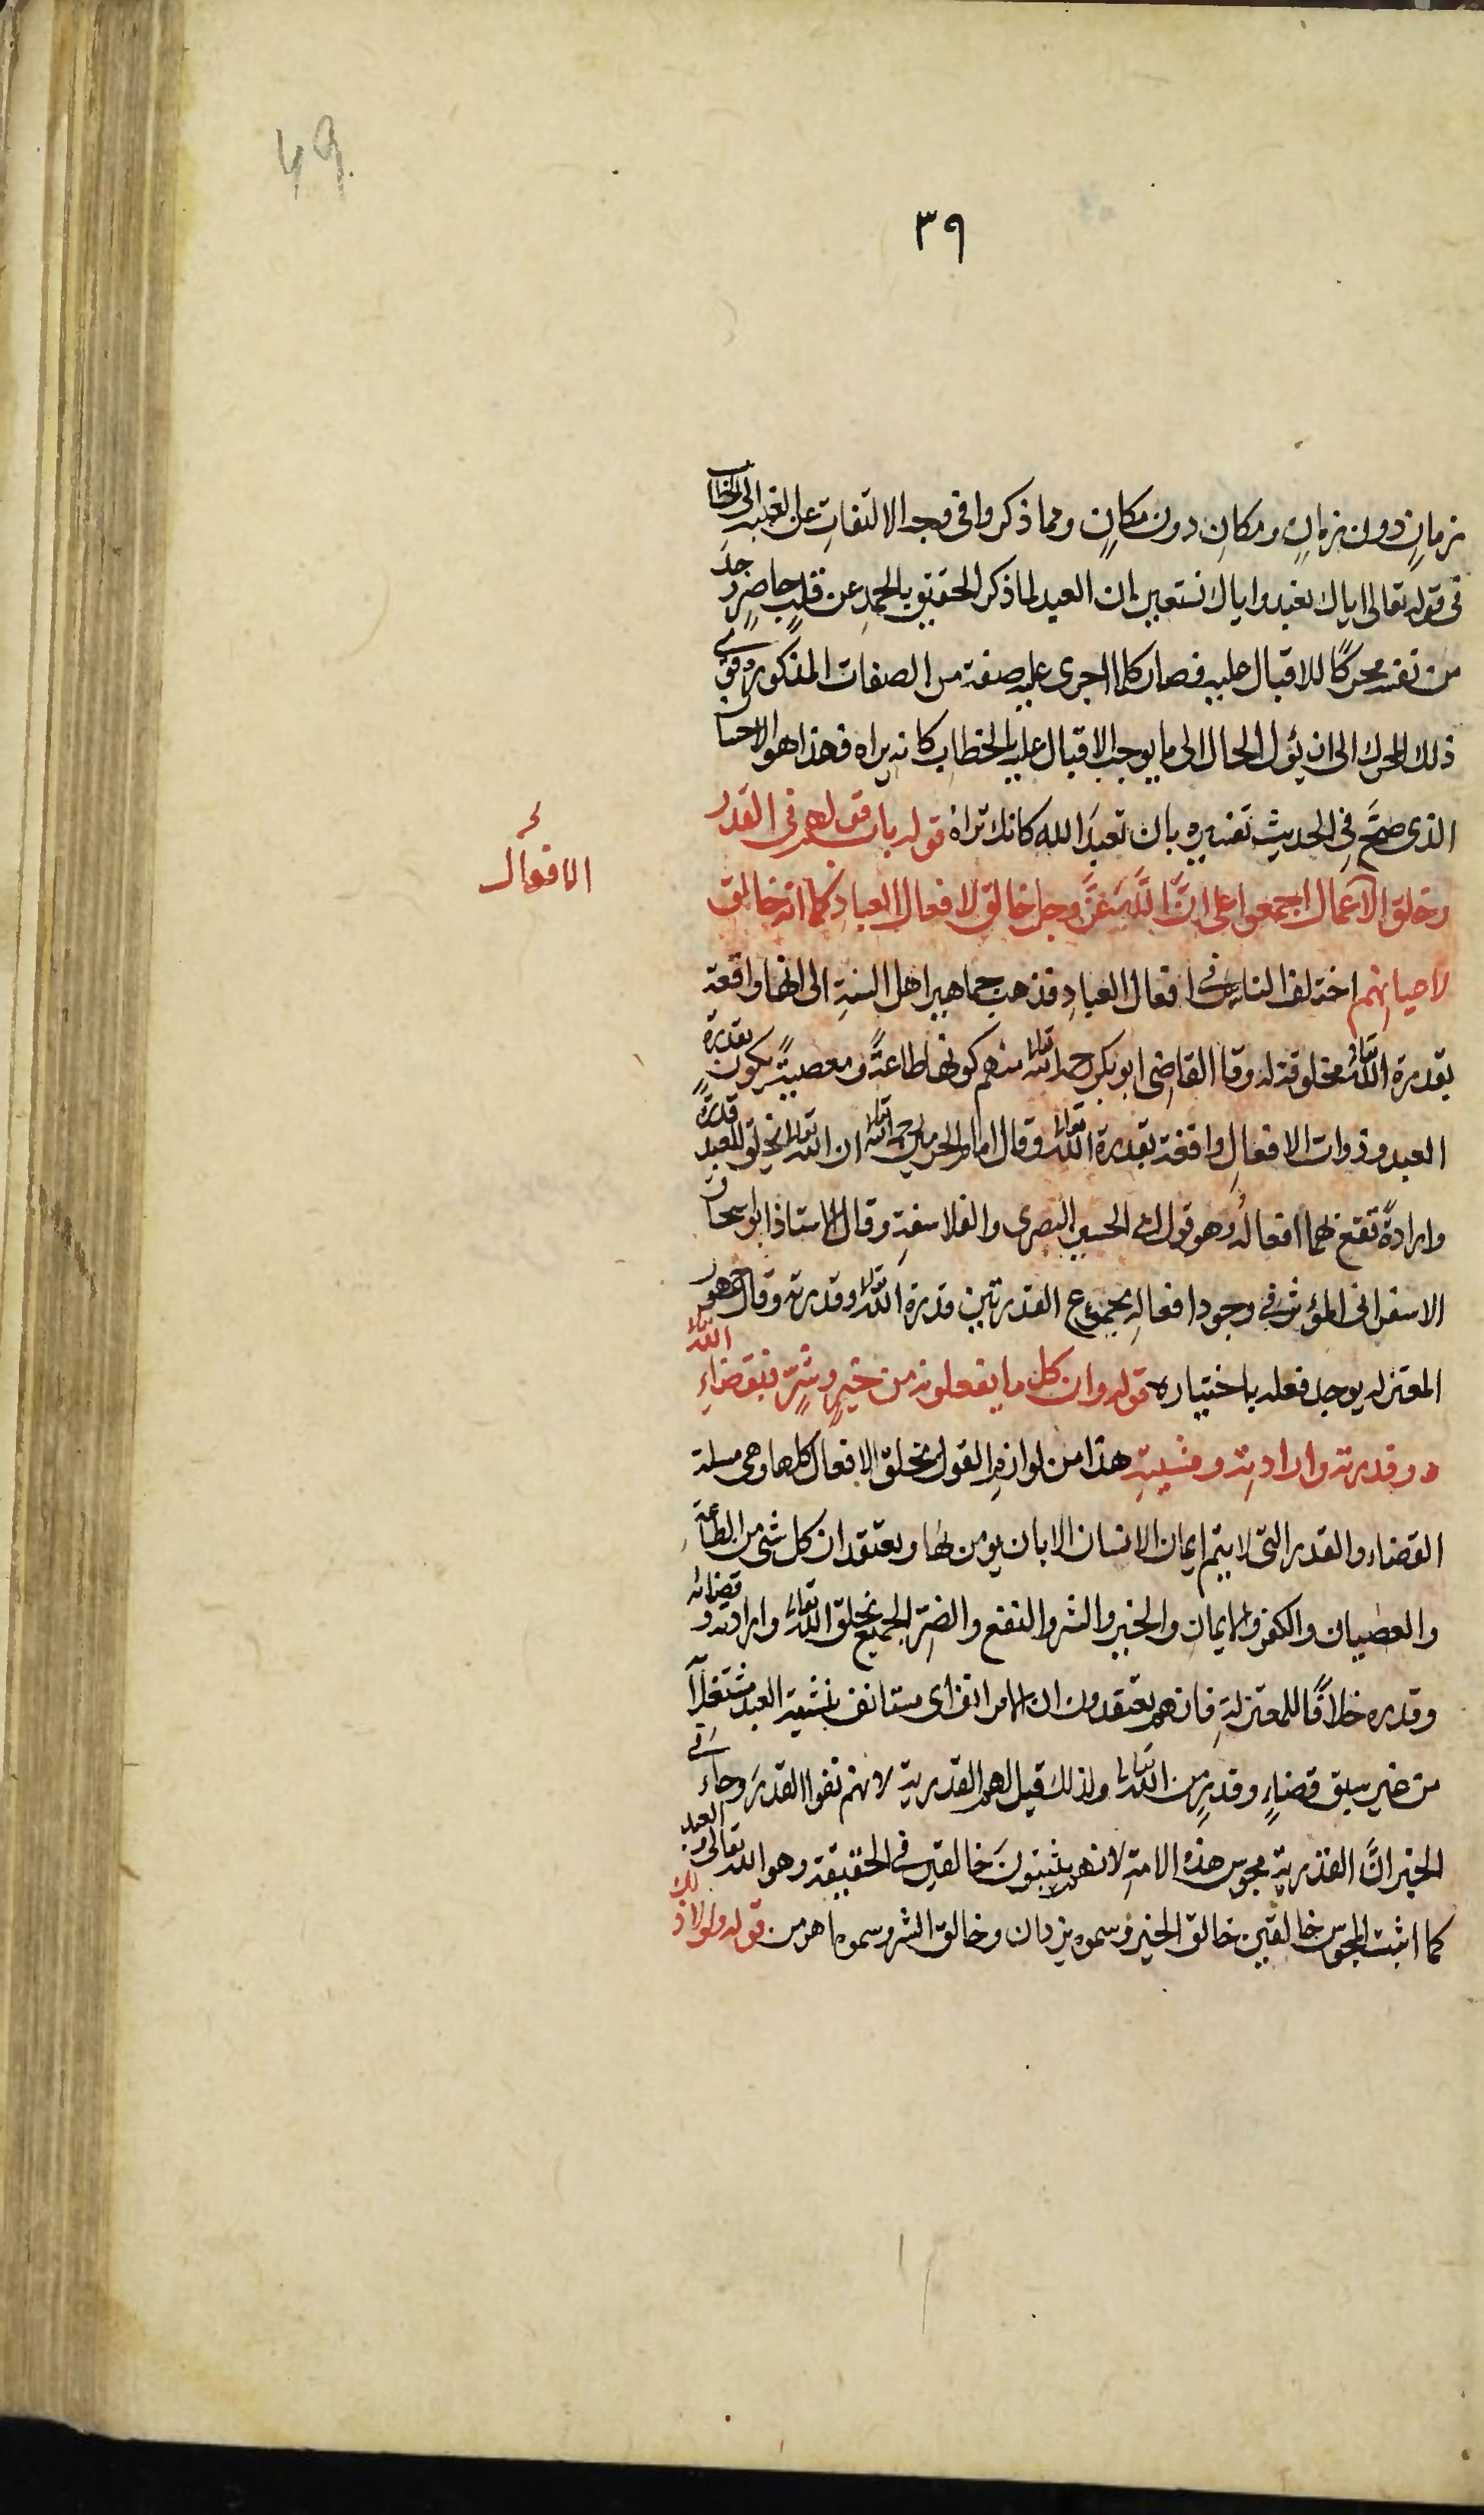 49.
٣٩
زمانٍ دون زمانٍ ومكانٍ دون مكانٍ ومما ذكروا فى وجه الالتفاتِ عن الغيبة الى الخطاب
فى قوله تعالى اياك نعبد واياك نستعين ان العبد لما ذكر الحقيق بالحمدِ عن قلبٍ حاضرٍ وجد
من نفسه محركًا للاقبال عليه فصار كلما اجرى عليه صفة من الصفات المذكورة قوى
ذلك المحرك الى ان يؤل الحال الى ما يوجب الاقبال عليه بالخطاب كانه يراه فهذا هو الاحسان
الذى صحَّ فى الحديثِ تفسيره بان تعبدَ الله كانك تراه قوله باب قولهم فى القَدَر
وخلق الاعمال اجمعوا على انَّ اللّٰهَ عزَّ وجل خالق لافعال العباد كما انه خالق
الافعال
لاعيانهم اختلف الناس فى افعال العبادِ فذهب جماهير اهل السنةِ الى انها واقعة
بقدرة الله تعالى مخلوقة له وقال القاضى ابو بكر رحمه الله تعالى منهم كونها طاعةً ومعصيةً يكون بقدرة
العبد وذوات الافعالِ واقعة بقدرة الله تعالى وقال امام الحرمين رحمه الله تعالى ان الله تعالى يخلق للعبد قدرةً
وارادةً تقع بهما افعالُه وهو قول ابى الحسين البصرى والفلاسفةِ وقال الاستاذ ابو اسحاق
الاسفرانى المؤثر فى وجود افعالِه مجموع القدرتين قدرة الله تعالى وقدرته وقال جمهور
المعتزله يوجد فعله باختياره قوله وان كل ما يفعلونه من خيرٍ وشرٍّ فبقضاءِ الله تعالى
وقدرته وارادتِه ومشيتِه هذا من لوازم القول بخلق الافعال كلها وهى مسلة
القضاء والقدر التى لا يتم ايمان الانسان الا بان يومن بها ويعتقد ان كل شى من الطاعة
والعصيان والكفر والايمان والخير والشر والنفع والضرّ الجميع بخلق الله تعالى وارادته وقضائه
وقدره خلافًا للمعتزلةِ فانهم يعتقدون ان الامر انف اى مستانف بمشية العبد مشتغلاً
من غير سبق قضاءٍ وقدرٍ من الله تعالى ولذلك قيل لهم القدرية لانهم نفوا القدرَ وجاء فى
الخبر انَّ القدرية مجوس هذه الامةِ لانهم يثبتونَ خالقين فى الحقيقة وهو الله تعالى والعبد
كما اثبت المجوس خالقين خالق الخير وسموه يزدان وخالق الشر وسموه اهرمن قوله ولولا ذلك